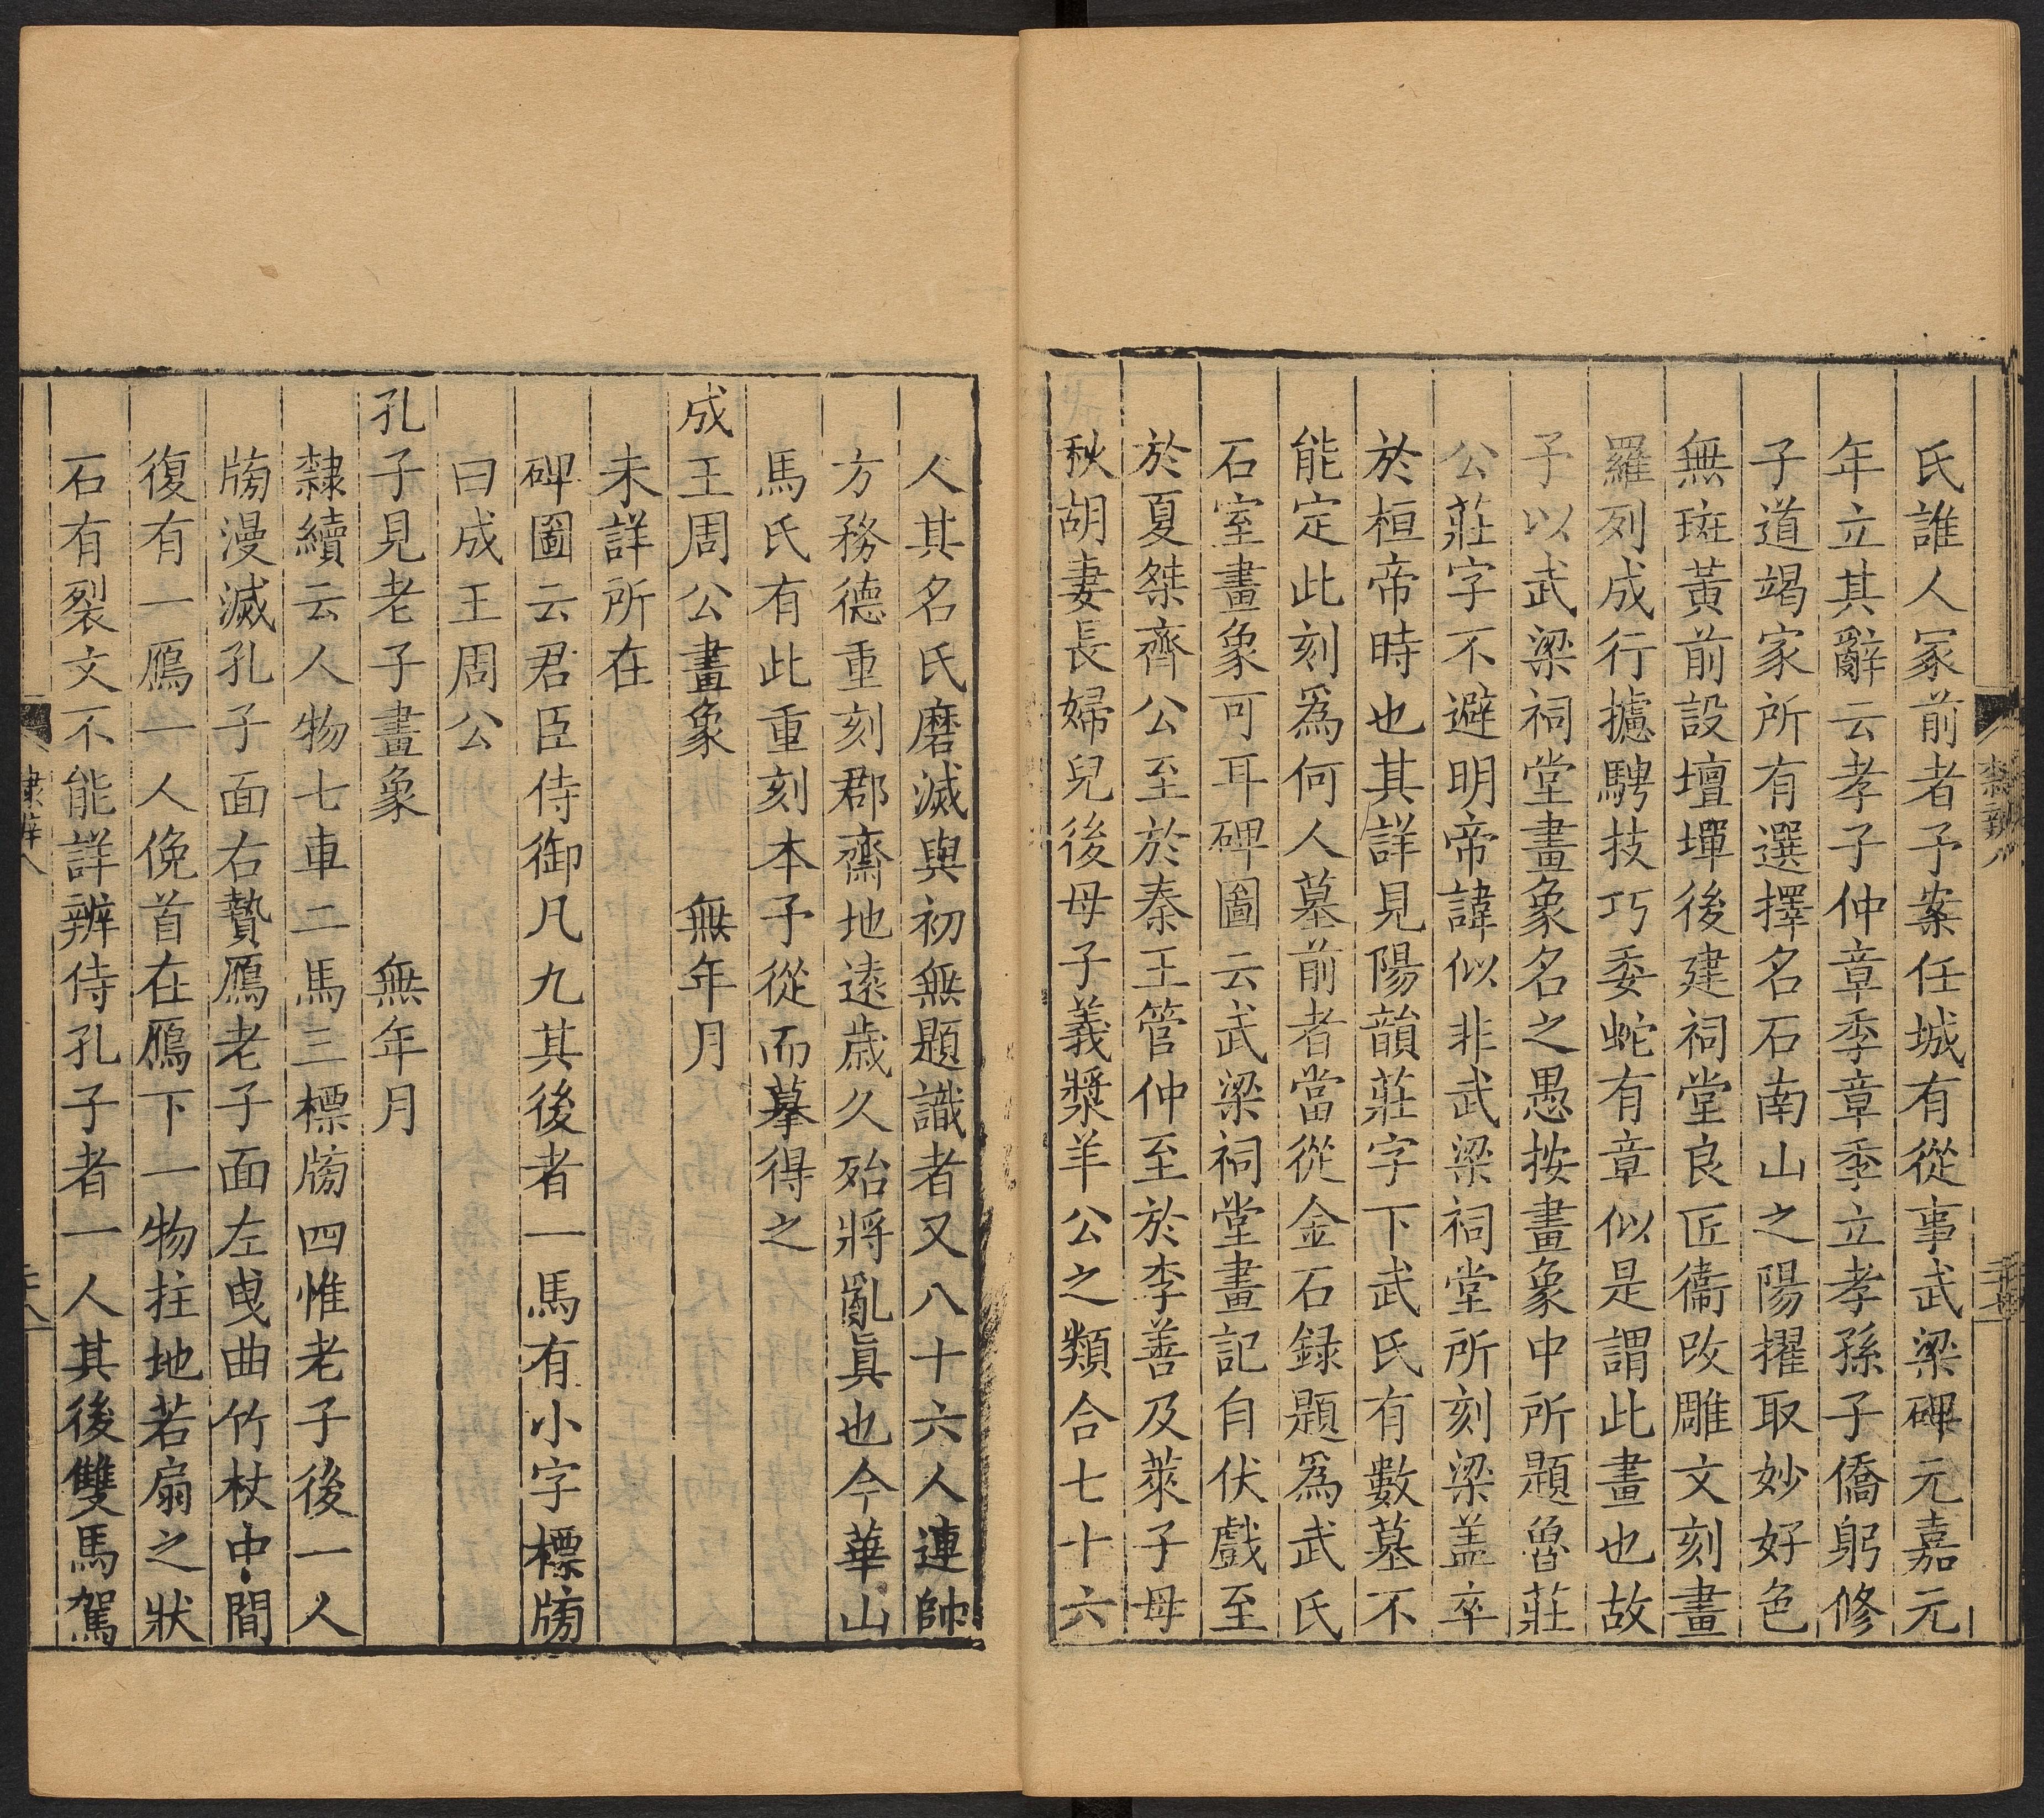 氏誰人冢前者予案任城有從事武梁碑元嘉元
年立其辭云孝子仲章季章季立孝孫子僑躬修
子道竭家所有選擇名石南山之陽擢取妙好色
無斑黃前設壇墠後建祠堂良匠衞改雕文刻畫
羅列成行攄騁技巧委蛇有章似是謂此畫也故
予以武梁祠堂畫象名之愚按畫象中所題魯莊
公莊字不避明帝諱似非武梁祠堂所刻梁盖卒
於桓帝時也其詳見陽韻莊字下武氏有數墓不
能定此刻爲何人墓前者當從金石録題爲武氏
石室畫象可耳碑圖云武梁祠堂畫記自伏戲至
於夏桀齊公至於秦王管仲至於李善及萊子母
秋胡妻長婦兒後母子義漿羊公之類合七十六
隸辨八
人其名氏磨滅與初無題識者又八十六人連帥
方務德重刻郡齋地遠歲久殆將亂眞也今華山
馬氏有此重刻本予從而摹得之
成王周公畫象 無年月
未詳所在
碑圖云君臣侍御凡九其後者一馬有小字標牓
曰成王周公
孔子見老子畫象 無年月
隸續云人物七車二馬三標牓四惟老子後一人
牓漫滅孔子面右贄鴈老子面左曳曲竹杖中間
復有一鴈一人俛首在鴈下一物拄地若扇之狀
石有裂文不能詳辨侍孔子者一人其後雙馬駕
隸辨八